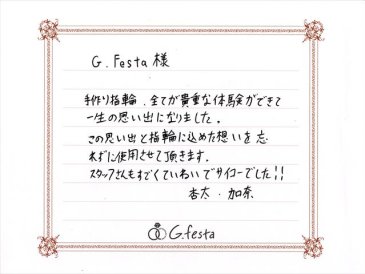 G.Festa 様
手作り指輪、全てが貴重な体験ができて
一生の思い出になりました。
この思い出と指輪に込めた想いを忘
れずに使用させて頂きます。
スタッフさんもすごくていねいでサイコーでした!!
杏太・加奈
G.festa